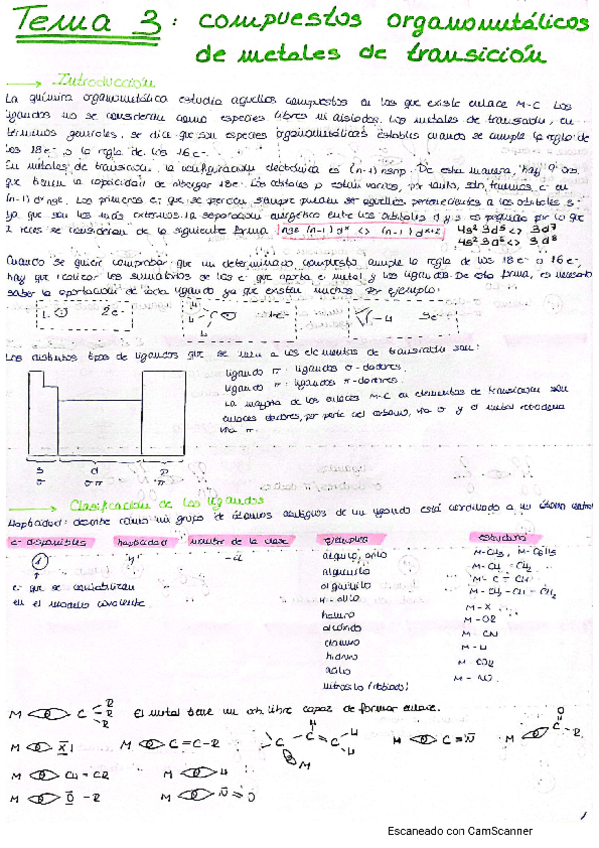 Tema 3: compuestos organometálicos
de metales de transición
Introducción
La química organometálica estudia aquellos compuestos en los que existe enlace M-C. Los
ligandos no se consideran como especies libres ni aisladas. Los metales de transición, en
términos generales, se dice que son especies organometálicas estables cuando se cumple la regla de
los 18e- o la regla de los 16e-.
En metales de transición, la configuración electrónica es (n-1) nsnp. De esta manera, hay 9 orb.
que tienen la capacidad de albergar 18e-. Los orbitales p están vacíos, por tanto, son
(n-1)d ns. Los primeros e- que se pierden siempre son aquellos pertenecientes a los orbitales s
ya que son los más externos. La separación energética entre los orbitales d y s es pequeña por lo que
a veces se consideran de la siguiente forma ns2 (n-1)dx <> (n-1)dx+2 4s2 3d5 <> 3d7
4s2 3d6 <> 3d8
Cuando se quiere comprobar que un determinado compuesto cumple la regla de los 18e- o 16e-,
hay que realizar los sumatorios de los e- que aporta el metal y los ligandos. De esta forma, es necesario
saber la aportación de cada ligando ya que existen muchos por ejemplo:
2e-
1e-
3e-
Los distintos tipos de ligandos que se unen a los elementos de transición son:
ligando σ: ligandos σ-dadores.
ligando π: ligandos π-dadores.
La mayoría de los enlaces M-C en elementos de transición son
enlaces dadores, por parte del carbono, vía σ y el metal retrodona
vía π.
s d p
σ σπ π
Clasificación de los ligandos
Hapticidad: describe cómo un grupo de átomos contiguos de un ligando está coordinado a un átomo central
e- disponibles hapticidad nombre de la clase ejemplos estructura
1 η1 alquilo, arilo M-CH3, M-C6H5
e- que se contabilizan alquenilo M-CH=CH2
en el modelo covalente. alquinilo M-C≡CH
alilo M-CH2-CH=CH2
haluro M-X
alcóxido M-OR
cianuro M-CN
hidruro M-H
acilo M-COR
nitrosilo (doblado) M-NO
M C R R R El metal tiene un orb. libre capaz de formar enlace.
M X M C≡C-R C C C H H H M M C≡N M C O R
M CH=CR M H
M O-R M N=O
1
Escaneado con CamScanner